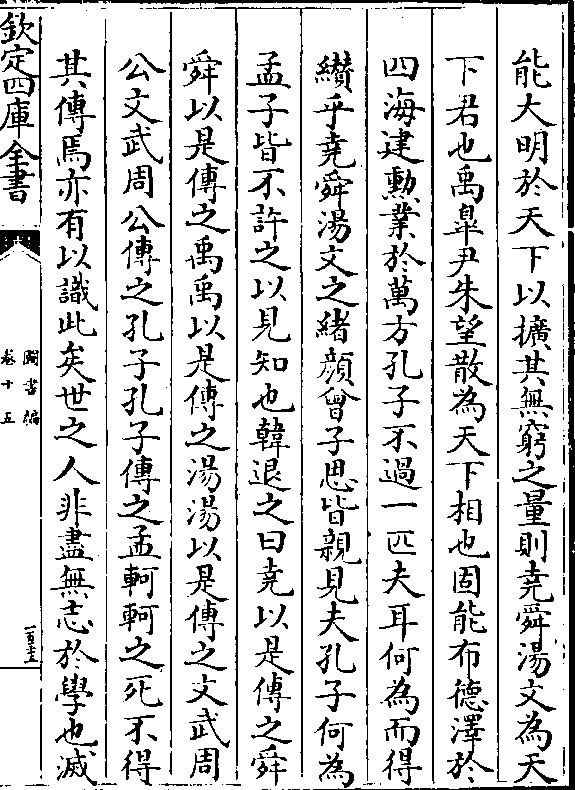 能大明於天下以擴其無窮之量則堯舜湯文為天
下君也禹皐尹朱望散為天下相也固能布德澤於
四海建勲業於萬方孔子不過一匹夫耳何為而得
纉乎堯舜湯文之緒顔曾子思皆親見夫孔子何為
孟子皆不許之以見知也韓退之曰堯以是傳之舜
舜以是傳之禹禹以是傳之湯湯以是傳之文武周
公文武周公傳之孔子孔子傳之孟軻軻之死不得
其傳焉亦有以識此矣世之人非盡無志於學也滅
欽定四庫全書
圖書編
卷十五